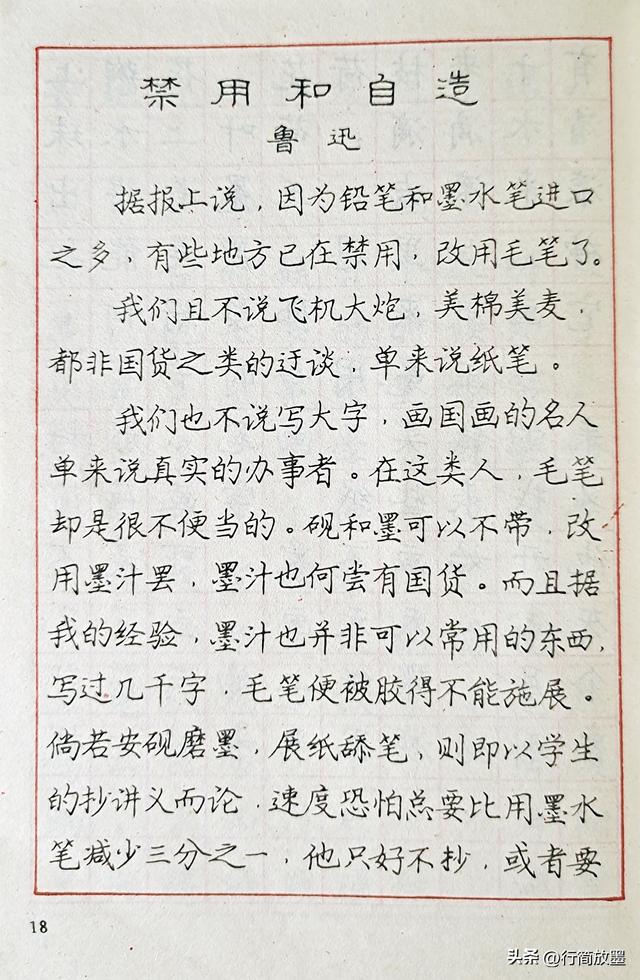 禁用和自造
鲁迅
据报上说，因为铅笔和墨水笔进口
之多，有些地方已在禁用，改用毛笔了。
我们且不说飞机大炮，美棉美麦，
都非国货之类的迂谈，单来说纸笔。
我们也不说写大字，画国画的名人
单来说真实的办事者。在这类人，毛笔
却是很不便当的。砚和墨可以不带，改
用墨汁罢，墨汁也何尝有国货。而且据
我的经验，墨汁也并非可以常用的东西，
写过几千字，毛笔便被胶得不能施展。
倘若安砚磨墨，展纸舔笔，则即以学生
的抄讲义而论，速度恐怕总要比用墨水
笔减少三分之一，他只好不抄，或者要
18
头条 @行简放墨